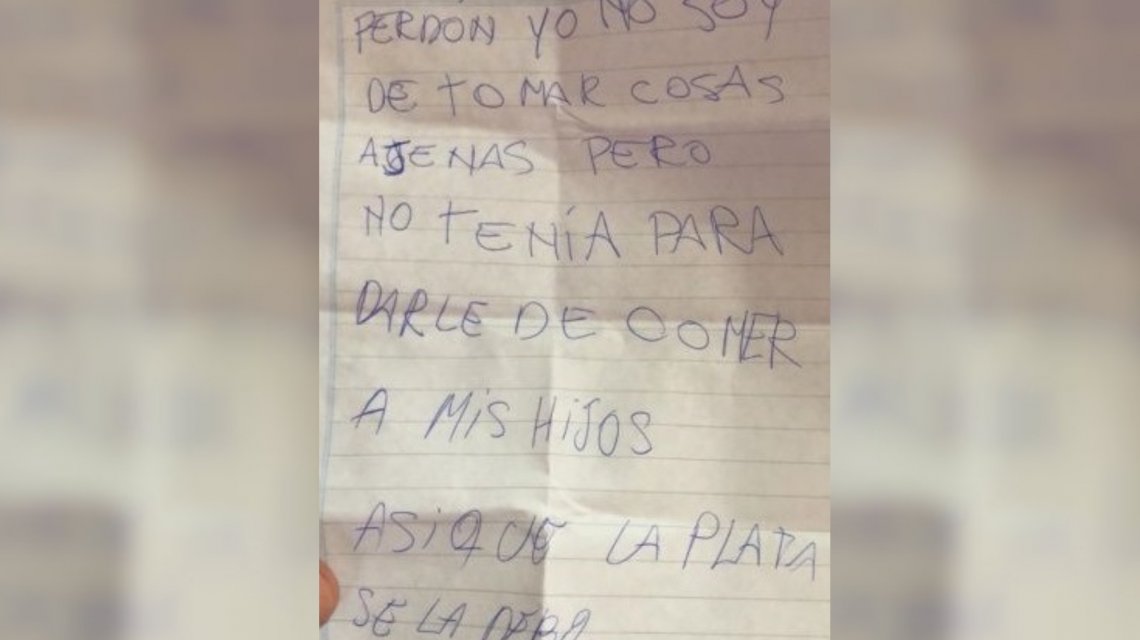 PERDON YO NO SOY
DE TOMAR COSAS
AJENAS PERO
NO TENÍA PARA
DARLE DE COMER
A MIS HIJOS
ASI QUE LA PLATA
SE LA DEBO